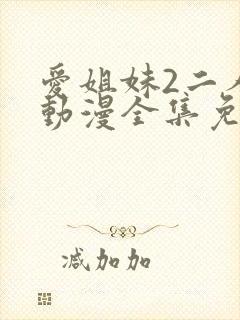 愛姐妹2二
動漫全集免
减加加